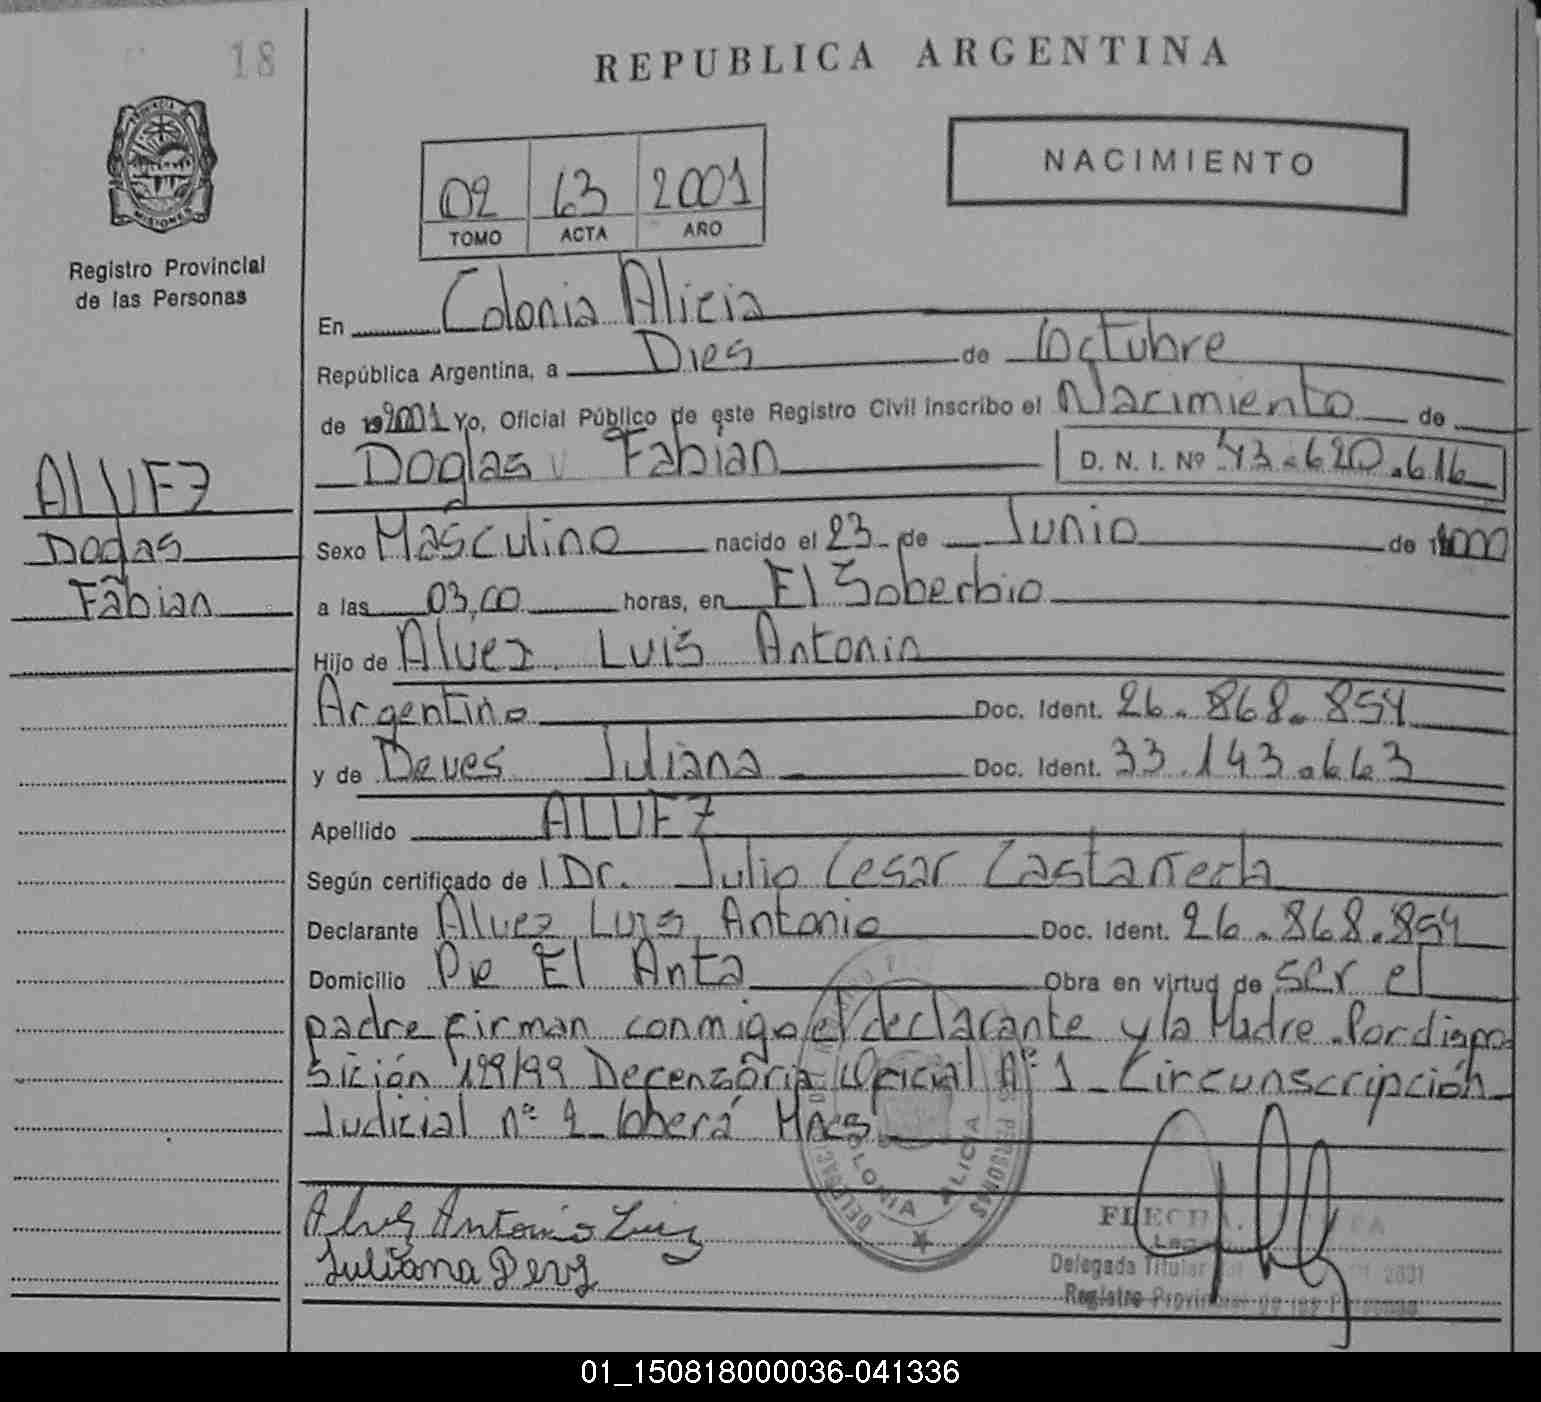 18
REPUBLICA ARGENTINA
PROVINCIA
MISIONES
Registro Provincial
de las Personas
NACIMIENTO
02 63 2001
TOMO ACTA AÑO
En Colonia Alicia
República Argentina, a Dies de Octubre
de 2001 Yo, Oficial Público de este Registro Civil inscribo el Nacimiento de
Doglas Fabian D. N. I. Nº 43.620.616
ALVEZ
Doglas
Fabian
Sexo Masculino nacido el 23 de Junio de 2000
a las 03,00 horas, en El Soberbio
Hijo de Alvez Luis Antonio
Argentino Doc. Ident. 26.868.854
y de Deves Juliana Doc. Ident. 33.143.663
Apellido ALVEZ
Según certificado de Dr. Julio Cesar Castañeda
Declarante Alvez Luis Antonio Doc. Ident. 26.868.854
Domicilio Pje El Anta Obra en virtud de ser el
padre firman conmigo el declarante y la Madre. Por dispo
sición 199/99 Defensoria Oficial Nº 1 Circunscripción
Judicial nº 2 Oberá Mnes
COLONIA ALICIA
Antonio Luiz
Juliana
Delegada Titular
Registro Provincial de las Personas
01_150818000036-041336